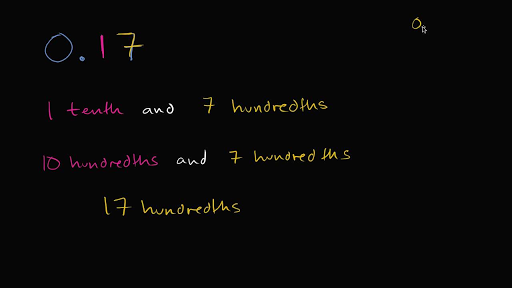 0.17
0
1 tenth and 7 hundredths
10 hundredths and 7 hundredths
17 hundredths